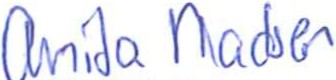 Anita Madsen